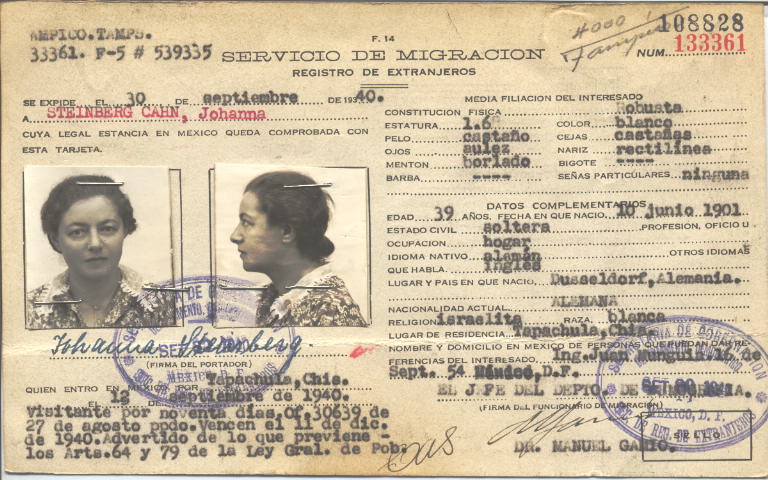 AMPICO.TAMPS.
33361. F-5 # 539335
F. 14
4000
108828
SERVICIO DE MIGRACION
NUM. 133361
REGISTRO DE EXTRANJEROS
SE EXPIDE EL 30 DE septiembre DE 1940.
A STEINBERG CAHN, Johanna
CUYA LEGAL ESTANCIA EN MEXICO QUEDA COMPROBADA CON
ESTA TARJETA.
MEDIA FILIACION DEL INTERESADO
CONSTITUCION FISICA Robusta
ESTATURA 1.6 COLOR blanco
PELO castaño CEJAS castañas
OJOS aulez NARIZ rectilínea
MENTON borlado BIGOTE ----
BARBA ---- SEÑAS PARTICULARES ninguna
DATOS COMPLEMENTARIOS
EDAD 39 AÑOS. FECHA EN QUE NACIO 10 junio 1901
ESTADO CIVIL soltera PROFESION, OFICIO U
OCUPACION hogar
IDIOMA NATIVO alemán OTROS IDIOMAS
QUE HABLA. inglés
LUGAR Y PAIS EN QUE NACIO, Dusseldorf,Alemania.
NACIONALIDAD ACTUAL ALEMANA
RELIGION israelita RAZA blanca
LUGAR DE RESIDENCIA Tapachula,Chis.
NOMBRE Y DOMICILIO EN MEXICO DE PERSONAS QUE PUEDAN DAR RE-
FERENCIAS DEL INTERESADO. Ing.Juan Munguin 16 de
Sept. 54 México,D.F.
EL JEFE DEL DEPTO. DE
(FIRMA DEL FUNCIONARIO DE MIGRACION)
DR. MANUEL GAMIO.
SELLO
MEXICO, D. F.
DE REG. DE EXTRANJEROS
Johanna Steinberg.
(FIRMA DEL PORTADOR)
MEXICO D. F.
QUIEN ENTRO EN MEXICO POR Tapachula,Chis.
EL 12 DE septiembre de 1940.
Visitante por noventa días.Of.30639 de
27 de agosto ppdo.Vencen el 11 de dic.
de 1940.Advertido de lo que previene -
los Arts.64 y 79 de la Ley Gral. de Pob.